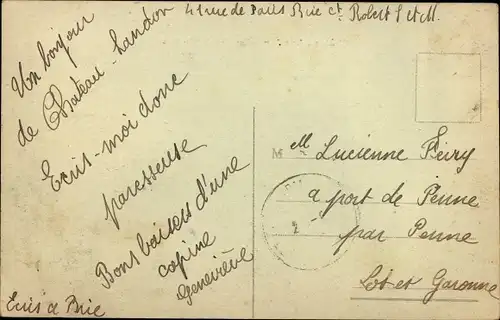 41 rue de Paris Brie Cte Robert S et M.
Un bonjour
de Chateau-Landon
Ecris-moi donc
paresseuse
Bons baisers d'une
copine
Geneviève
Ecris a Brie
Mell Lucienne Févry
a port de Penne
par Penne
Lot et Garonne